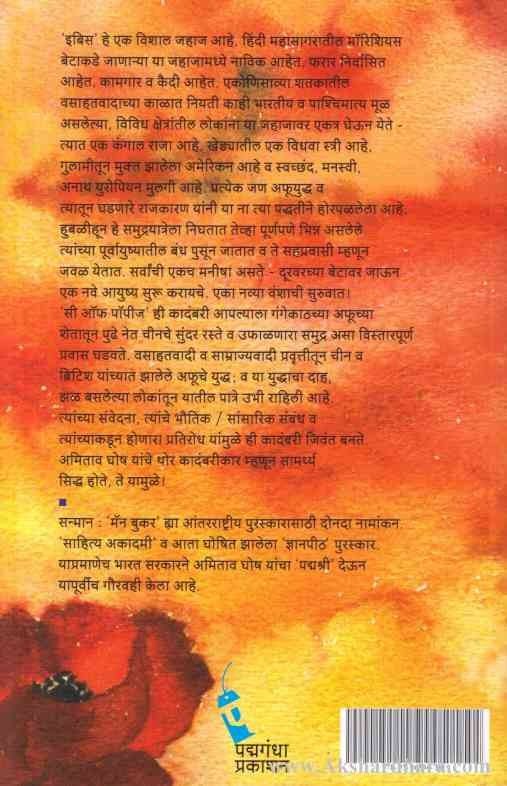 'इबिस' हे एक विशाल जहाज आहे. हिंदी महासागरातील मॉरिशियस
बेटाकडे जाणाऱ्या या जहाजामध्ये नाविक आहेत, फरार निर्वासित
आहेत, कामगार व कैदी आहेत. एकोणिसाव्या शतकातील
वसाहतवादाच्या काळात नियती काही भारतीय व पाश्चिमात्य मूळ
असलेल्या, विविध क्षेत्रांतील लोकांना या जहाजावर एकत्र घेऊन येते -
त्यात एक कंगाल राजा आहे, खेड्यातील एक विधवा स्त्री आहे,
गुलामीतून मुक्त झालेला अमेरिकन आहे व स्वच्छंद, मनस्वी,
अनाथ युरोपियन मुलगी आहे. प्रत्येक जण अफूयुद्ध व
त्यातून घडणारे राजकारण यांनी या ना त्या पद्धतीने होरपळलेला आहे.
हुबळीहून हे समुद्रयात्रेला निघतात तेव्हा पूर्णपणे भिन्न असलेले
त्यांच्या पूर्वायुष्यातील बंध पुसून जातात व ते सहप्रवासी म्हणून
जवळ येतात. सर्वांची एकच मनीषा असते - दूरवरच्या बेटावर जाऊन
एक नवे आयुष्य सुरू करायचे. एका नव्या वंशाची सुरुवात!
'सी ऑफ पॉपीज' ही कादंबरी आपल्याला गंगेकाठच्या अफूच्या
शेतातून पुढे नेत चीनचे सुंदर रस्ते व उफाळणारा समुद्र असा विस्तारपूर्ण
प्रवास घडवते. वसाहतवादी व साम्राज्यवादी प्रवृत्तीतून चीन व
ब्रिटिश यांच्यात झालेले अफूचे युद्ध; व या युद्धाचा दाह,
झळ बसलेल्या लोकांतून यातील पात्रे उभी राहिली आहे.
त्यांच्या संवेदना, त्यांचे भौतिक / सांसारिक संबंध व
त्यांच्याकडून होणारा प्रतिरोध यांमुळे ही कादंबरी जिवंत बनते.
अमिताव घोष यांचे थोर कादंबरीकार म्हणून सामर्थ्य
सिद्ध होते, ते यामुळे!
सन्मान : 'मॅन बुकर' ह्या आंतरराष्ट्रीय पुरस्कारासाठी दोनदा नामांकन.
'साहित्य अकादमी' व आता घोषित झालेला 'ज्ञानपीठ' पुरस्कार.
याप्रमाणेच भारत सरकारने अमिताव घोष यांचा 'पद्मश्री' देऊन
यापूर्वीच गौरवही केला आहे.
पद्मगंधा
प्रकाशन
www.Akshardhara.com